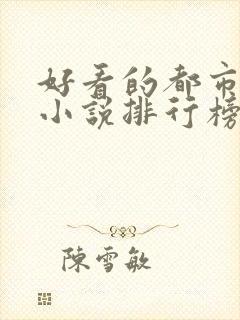 好看的都市
小说排行榜
陈雪敏